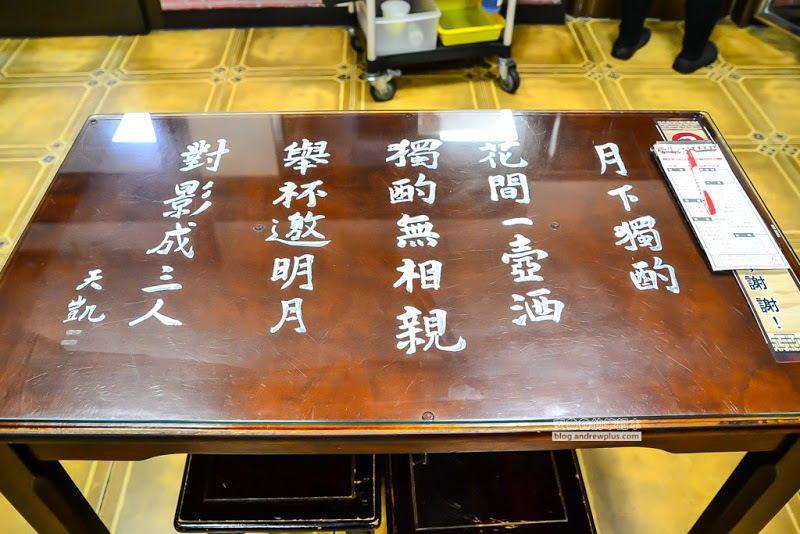 月下獨酌
花間一壺酒
獨酌無相親
舉杯邀明月
對影成三人
天凱
謝謝！
blog.andrewplus.com